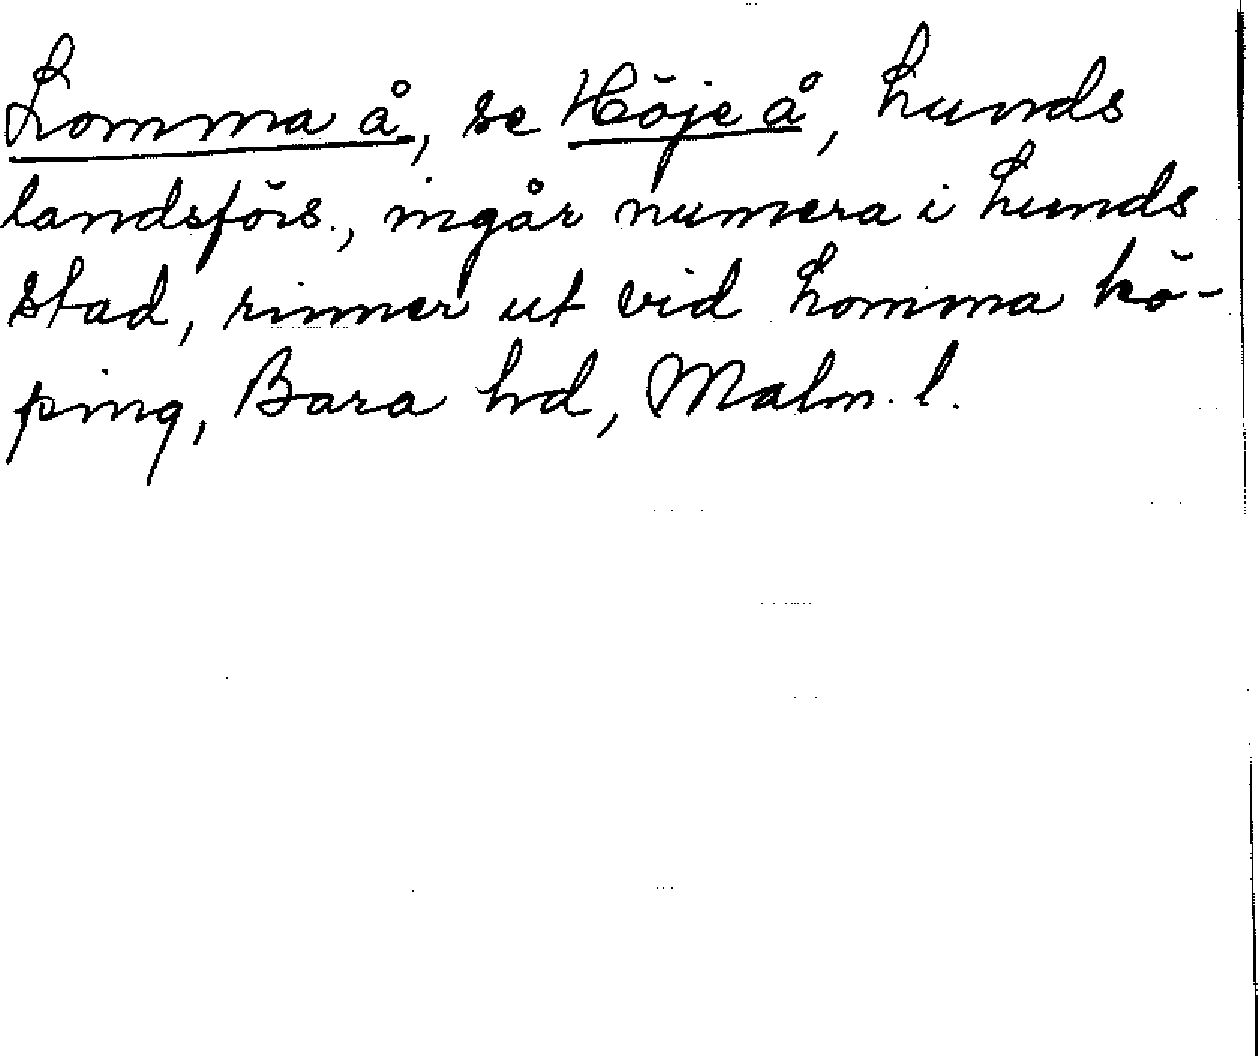 Lomma å, se Höje å, Lunds
landsförs., ingår numera i Lunds
stad, rinner ut vid Lomma kö-
ping, Bara hd, Malm. l.